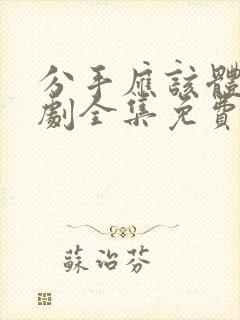 分手應該體
劇全集免費
蘇治芬